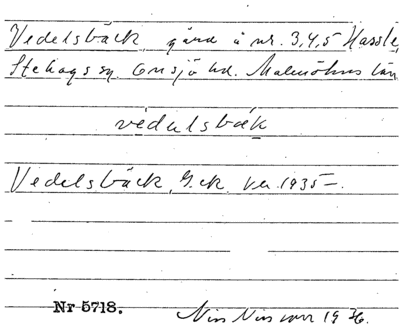 Vedelsbäck, gård å nr. 3,4,5 Hassle,
Stehags sn. Onsjö hd. Malmöhus län
vedulsbäk
Vedelsbäck, G.ek. ver. 1935–.
Nr 5718. Nils Nilsson 1936.